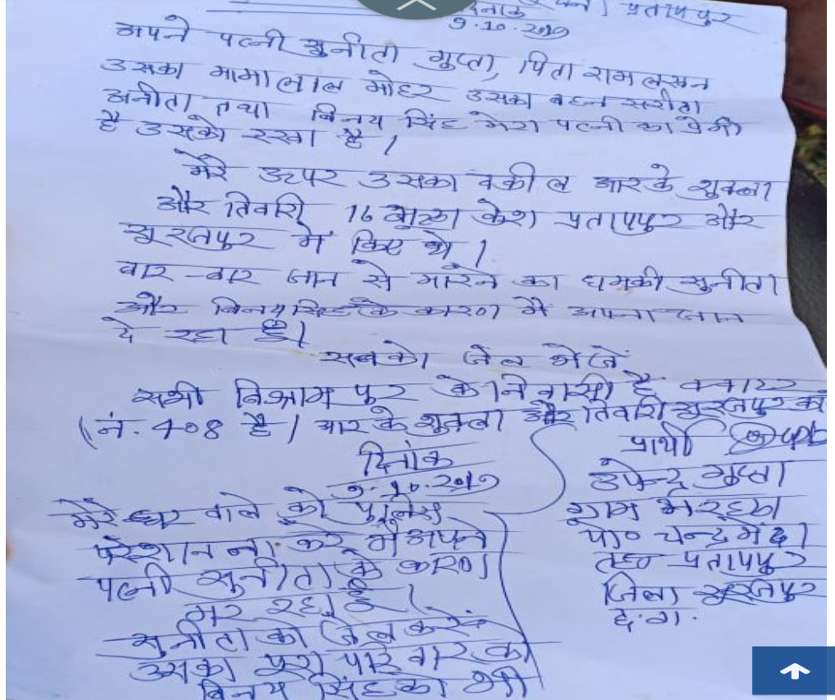 दिनांक प्रतापपुर
9.10.2019
अपने पत्नी सुनीता गुप्ता, पिता राम लखन
उसका मामा लाल मोहर उसका बहन सरीता
अनीता तथा बिनय सिंह मेरा पत्नी का प्रेमी
है उसको रखा है।
मेरे ऊपर उसका वकील आर के शुक्ला
और तिवारी 16 झुठा केश प्रतापपुर और
सूरजपुर में किए थे।
बार-बार जान से मारने का धमकी सुनीता
और बिनय सिंह के कारण मै अपना जान
दे रहा हूँ।
सबको जेल भेजें
सभी विश्रामपुर के निवासी है क्वाटर
नं. 408 है। आर के शुक्ला और तिवारी सूरजपुर का
प्रार्थी
उपेन्द्र गुप्ता
ग्राम
पो० चन्द्रमेढ़ा
तह० प्रतापपुर
जिला सूरजपुर
छ.ग.
दिनांक
9.10.2019
मेरे घर वाले को पुलिस
परेशान ना करे मै अपने
पत्नी सुनीता के कारण
मर रहा हूँ।
सुनीता को जेल करें
उसका पूरा परिवार को
बिनय सिंह को भी